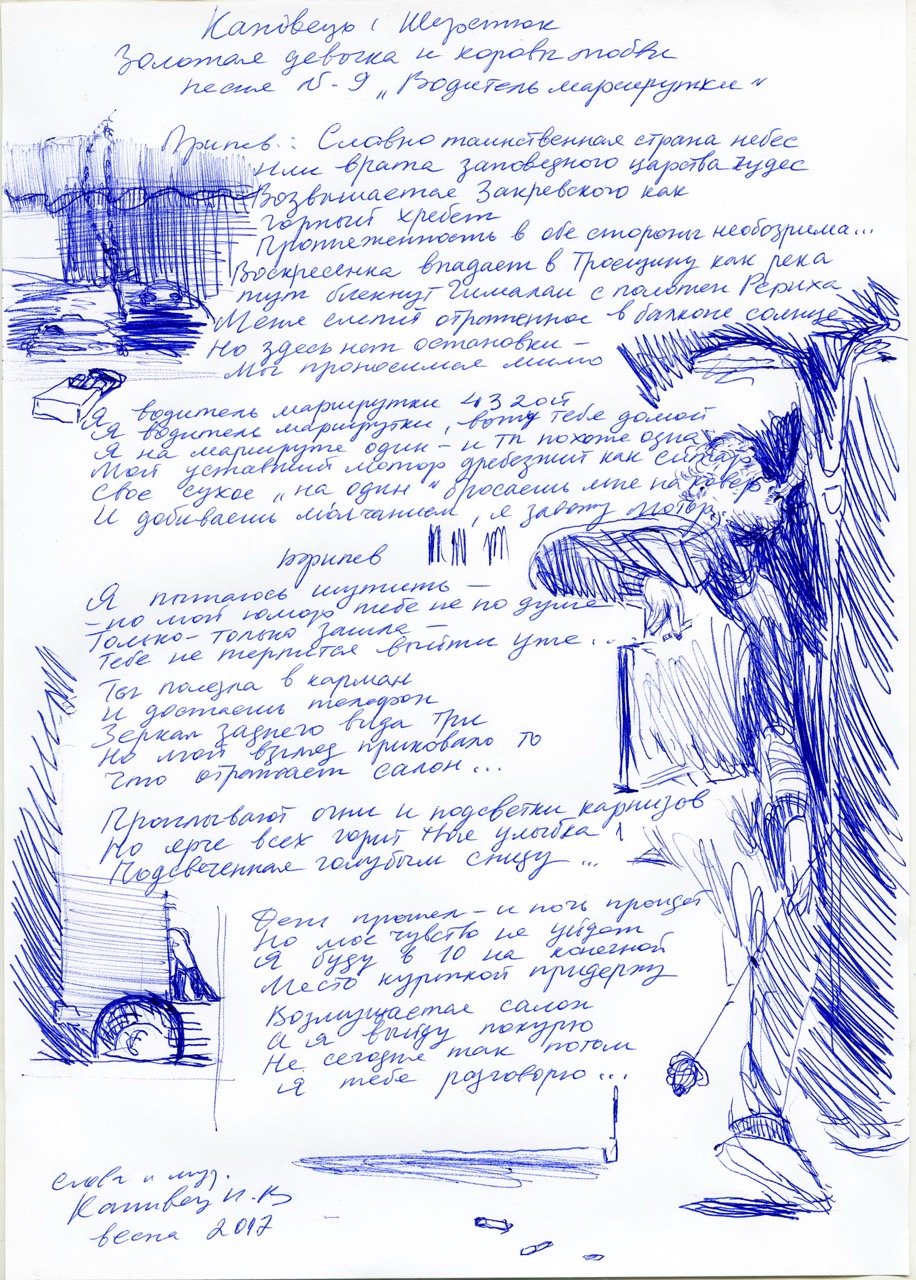 Капівець і Шерстюк
Золотая девочка и коровы любви
песня №-9 „Водитель маршрутки“
Припев: Словно таинственная страна небес
Или врата заповедного царства чудес
Возвышается Закревского как
горный хребет
Протяженность в обе стороны необозрима...
Воскресенка впадает в Троещину как река
тут блекнут Гималаи с полотен Рериха
Меня слепит отраженное в балконе солнце
Но здесь нет остановки –
Мы проносимся мимо
Я водитель маршрутки 432ой
Я водитель маршрутки, вожу тебя домой
Я на маршруте один – и ты похоже одна
Мой уставший мотор дребезжит как
Свое сухое „на один“ бросаешь мне на ковер
И добиваешь молчанием, я завожу мотор
Припев
Я пытаюсь шутить –
– но мой юмор тебе не по душе
Только-только зашла –
Тебе не терпится выйти уже...
Ты полезла в карман
и достаешь телефон
Зеркал заднего вида три
Но мой взгляд приковало то
Что отражает салон...
Проплывают огни и подсветки карнизов
Но ярче всех горит твоя улыбка
Подсвеченная голубым снизу...
День прошел – и ночь пройдет
Но мое чувство не уйдет
Я буду в 10 на конечной
Место курткой придержу
Возмущается салон
А я выйду покурю
Не сегодня так потом
Я тебя разговорю...
слова и муз.
Капивец И.В
весна 2017